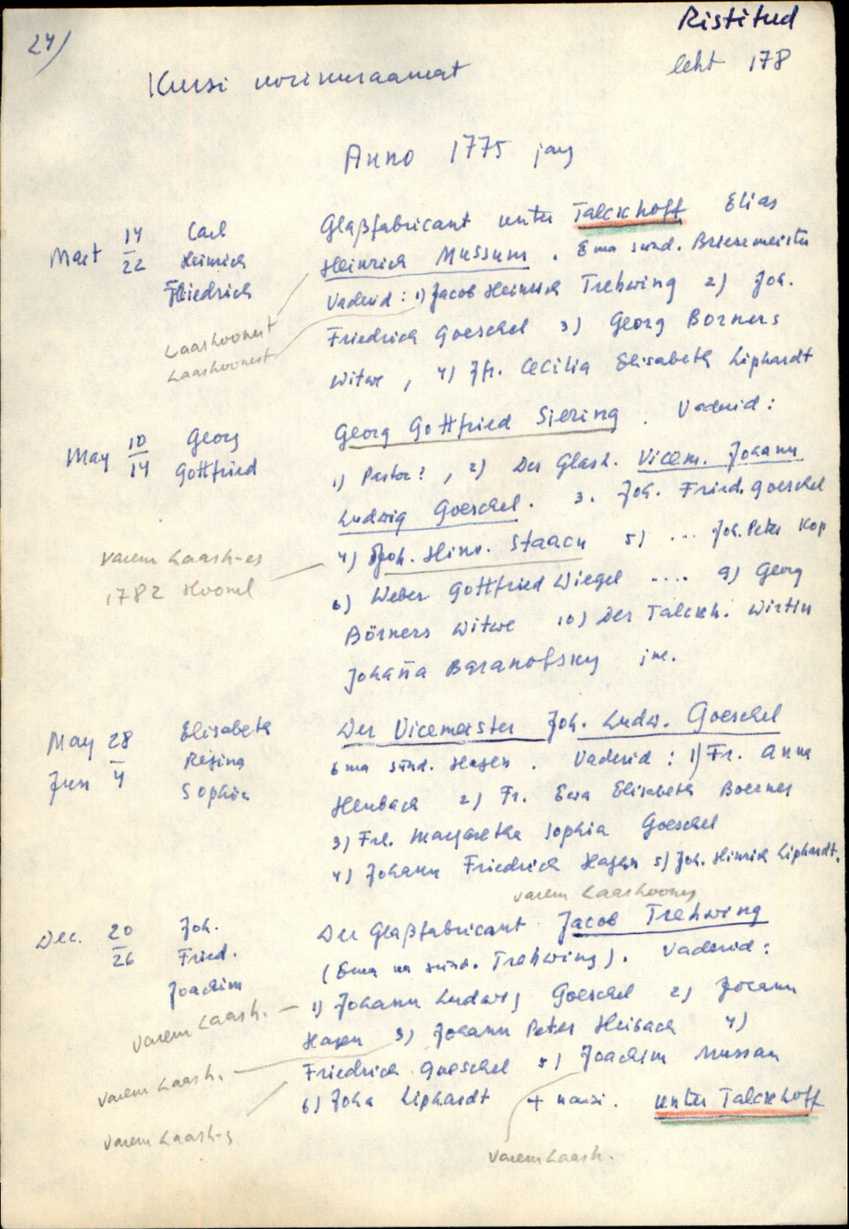 24) Ristitud
leht 178
Kursi
Anno 1775
Mart 14/22 Carl Heinrich Friedrich
Glaßfabricant unter Talckhoff Elias
Heinrich Mussum. Ema sünd. Briesemeister
Vaderid: 1) Jacob Heinrich Trehwing 2) Joh.
Friedrich Goeschel 3) Georg Borners
Witwe, 4) Jfr. Cecilia Elisabeth Liphardt
Laashoonest
Laashoonest
May 10/14 Georg Gottfried
Georg Gottfried Siering. Vaderid:
1) Pastor?, 2) Der Glash. Vicem. Johann
Ludwig Goeschel. 3. Joh. Fried. Goeschel
4) Joh. Hinr. Staack 5) ... Joh. Peter Kop
6) Weber Gottfried Wiegel .... 9) Georg
Börners Witwe 10) Der Talcksh. Wirtin
Johaña Baranofsky
varem Laash-es
1782
May 28 Elisabeth
Jun 4 Regina
Sophia
Der Vicemeister Joh. Ludw. Goeschel
Ema sünd. Hagen. Vaderid: 1) Fr. Anna
Heubach 2) Fr. Ewa Elisabeth Boerner
3) Frl. Margaretha Sophia Goeschel
4) Johann Friedrich Hagen 5) Joh. Hinrich Liphardt.
varem Laashoones
Dec. 20/26 Joh. Fried. Joachim
Der Glaßfabricant Jacob Trehwing
(Ema on sünd. Trehwing). Vaderid:
1) Johann Ludwig Goeschel 2) Johann
Hagen 3) Johann Peter Heibach 4)
Friedrich Goeschel 5) Joachim Mussan
6) Joha Liphardt + unter Talckhoff
varem Laash.
varem Laash.
varem Laash-s
varem Laash.